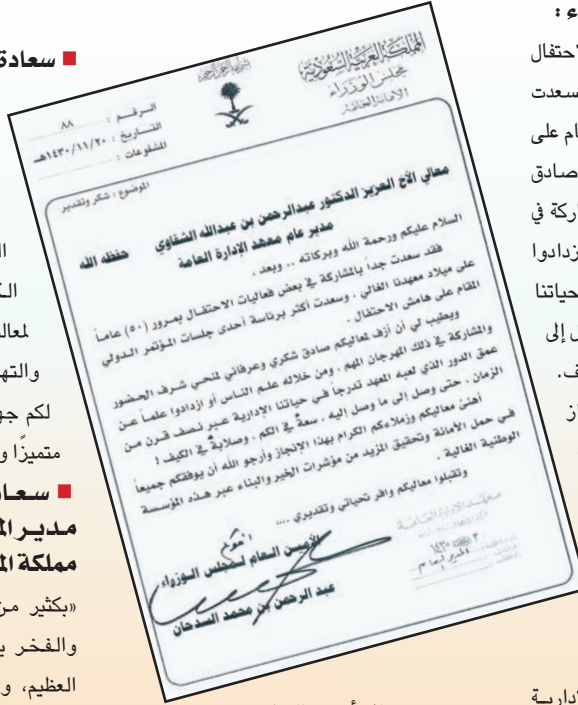 ■ سعادة
ء :
احتفال
سعدت
ام على
صادق
اركة في
زدادوا
حياتنا
ل إلى
ف.
از
دارية
المملكة العربية السعودية
مجلس الوزراء
الأمانة العامة
الرقم : ٨٨
التاريخ : ١٤٣٠/١١/٢٠هـ
المشفوعات :
الموضوع : شكر وتقدير
معالي الأخ العزيز الدكتور عبدالرحمن بن عبدالله الشقاوي حفظه الله
مدير عام معهد الإدارة العامة
السلام عليكم ورحمة الله وبركاته .. وبعد .
فقد سعدت جداً بالمشاركة في بعض فعاليات الاحتفال بمرور (٥٠) عاماً
على ميلاد معهدنا الغالي . وسعدت أكثر برئاسة أحدى جلسات المؤتمر الدولي
المقام على هامش الاحتفال .
ويطيب لي أن أزف لمعاليكم صادق شكري وعرفاني لمنحي شرف الحضور
والمشاركة في ذلك المهرجان المهم . ومن خلاله علم الناس أو ازدادوا علماً عن
عمق الدور الذي لعبه المعهد تدرجاً في حياتنا الإدارية عبر نصف قرن من
الزمان . حتى وصل إلى ما وصل إليه . سعةً في الكم . وصلابةً في الكيف !
أهنئ معاليكم وزملاءكم الكرام بهذا الإنجاز وأرجو الله أن يوفقكم جميعاً
في حمل الأمانة وتحقيق المزيد من مؤشرات الخير والبناء عبر هذه المؤسسة
الوطنية الغالية .
وتقبلوا معاليكم وافر تحياتي وتقديري ....
الأمين العام لمجلس الوزراء
عبد الرحمن بن محمد السدحان
لمعال
والته
لكم جه
متميزًا و
■ سعا
مدير الم
مملكة الم
«بكثير من
والفخر ب
العظيم، و